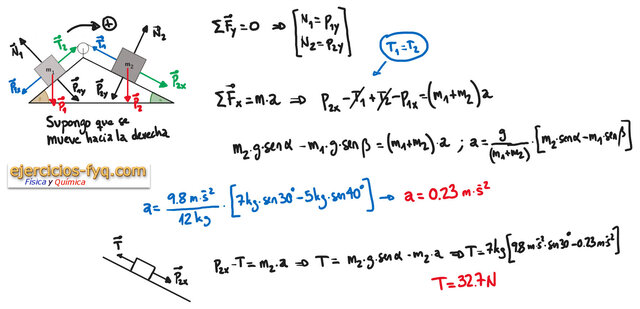 +
N⃗₁ T⃗₂ T⃗₁ N⃗₂
m₁ m₂
P⃗₁ₓ P⃗₁ᵧ P⃗₂ᵧ P⃗₂ₓ
P⃗₁ P⃗₂
Supongo que se
mueve hacia la derecha
ejercicios-fyq.com
Física y Química
ΣF⃗y = 0 ⇒ [N₁ = P₁y
N₂ = P₂y]
T₁ = T₂
ΣF⃗x = m·a ⇒ P₂x - T₁ + T₂ - P₁x = (m₁+m₂) a
m₂·g·senα - m₁·g·senβ = (m₁+m₂)·a ; a = g/(m₁+m₂) · [m₂·senα - m₁·senβ]
a = 9.8 m·s⁻²/12 kg · [7kg·sen30° - 5kg·sen40°] → a = 0.23 m·s⁻²
T⃗ P⃗₂x
P₂x - T = m₂·a ⇒ T = m₂·g·senα - m₂·a ⇒ T = 7kg[9.8 m·s⁻²·sen30° - 0.23 m·s⁻²]
T = 32.7N